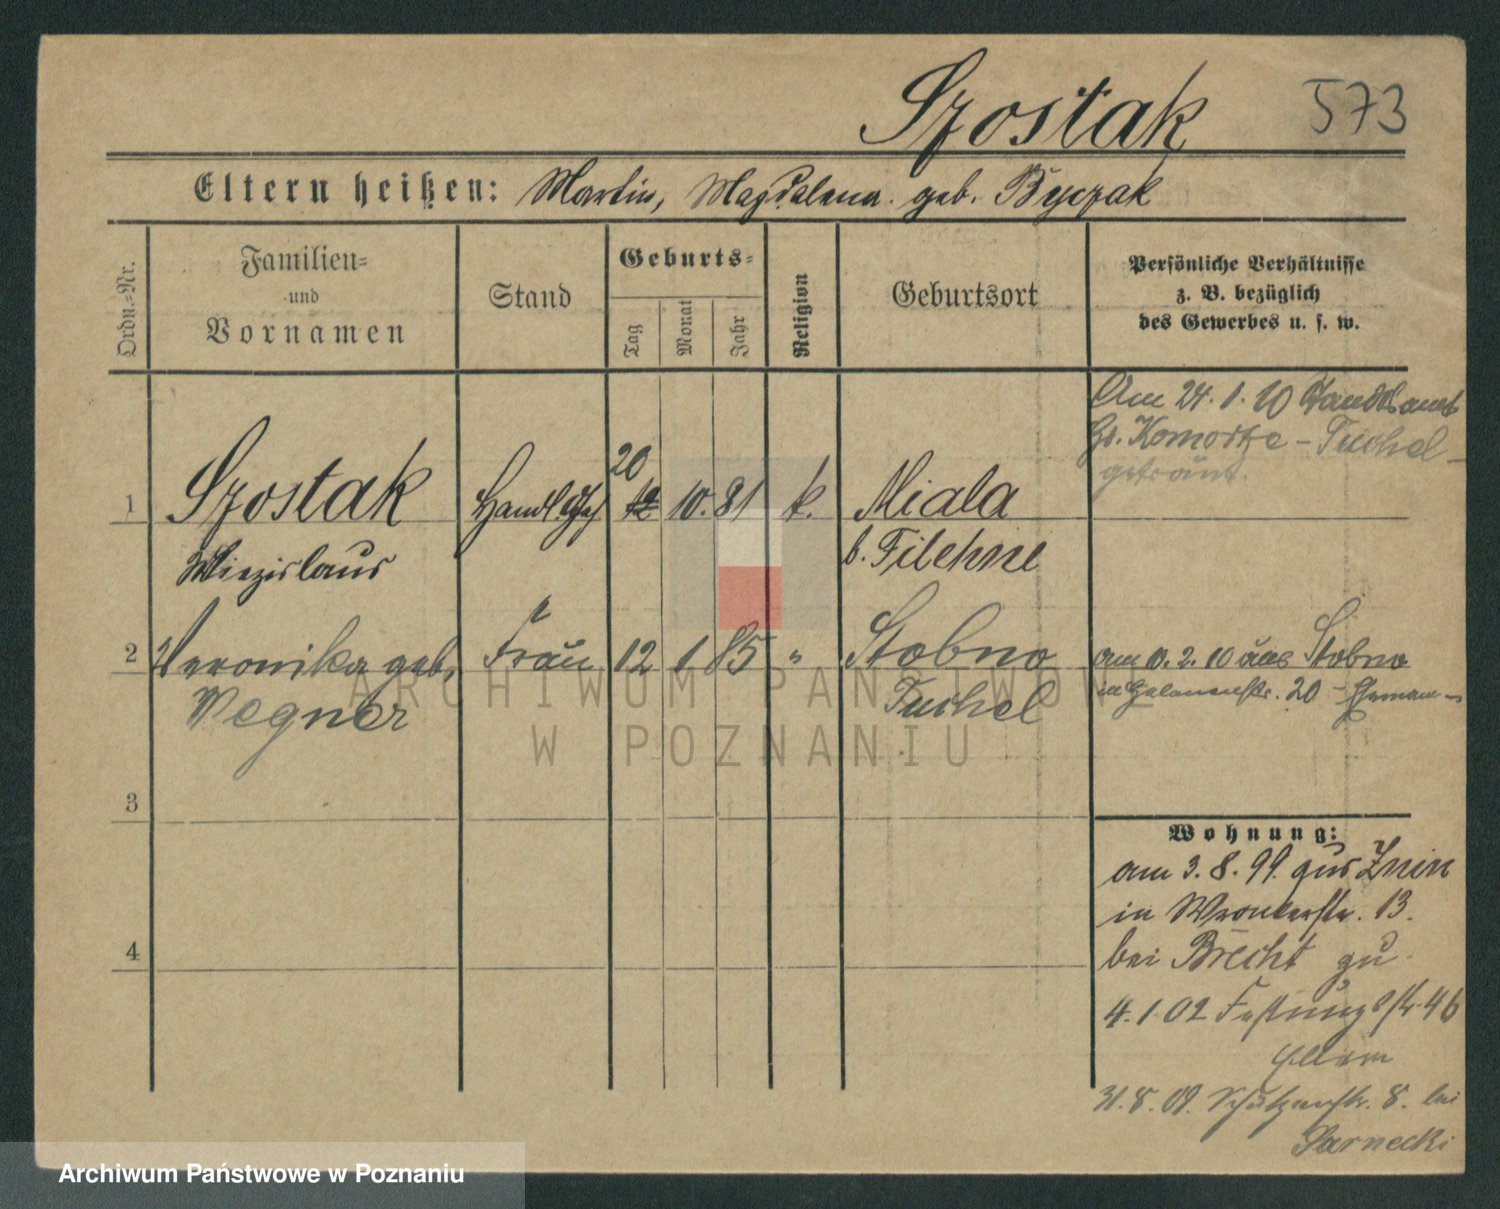 Szostak 573
Eltern heißen: Martin, Magdalena geb. Byczak
Ordn.=Nr.
Familien=
und
Vornamen
Stand
Geburts=
Tag
Monat
Jahr
Religion
Geburtsort
Persönliche Verhältnisse
z. B. bezüglich
des Gewerbes u. s. w.
Am 24. 1. 10 Standesamt
Gr. Komorze - Tuchel
getraut.
20
1 Szostak Handl. 12 10. 81 k. Miala
b. Filehne
2 Veronika geb. Frau 12 1 85 " Stobno
Wegner
Tuchel
am 10. 2. 10 aus Stobno
in 20 -
3
4
Wohnung:
am 3. 8. 99. aus Znin
in Wronkerstr. 13.
bei Brecht zu
4. 1. 02 Festungsstr. 46
Eltern
31. 8. 09. Schützenstr. 8. bei
Sarnecki
ARCHIWUM PAŃSTWOWE
W POZNANIU
Archiwum Państwowe w Poznaniu